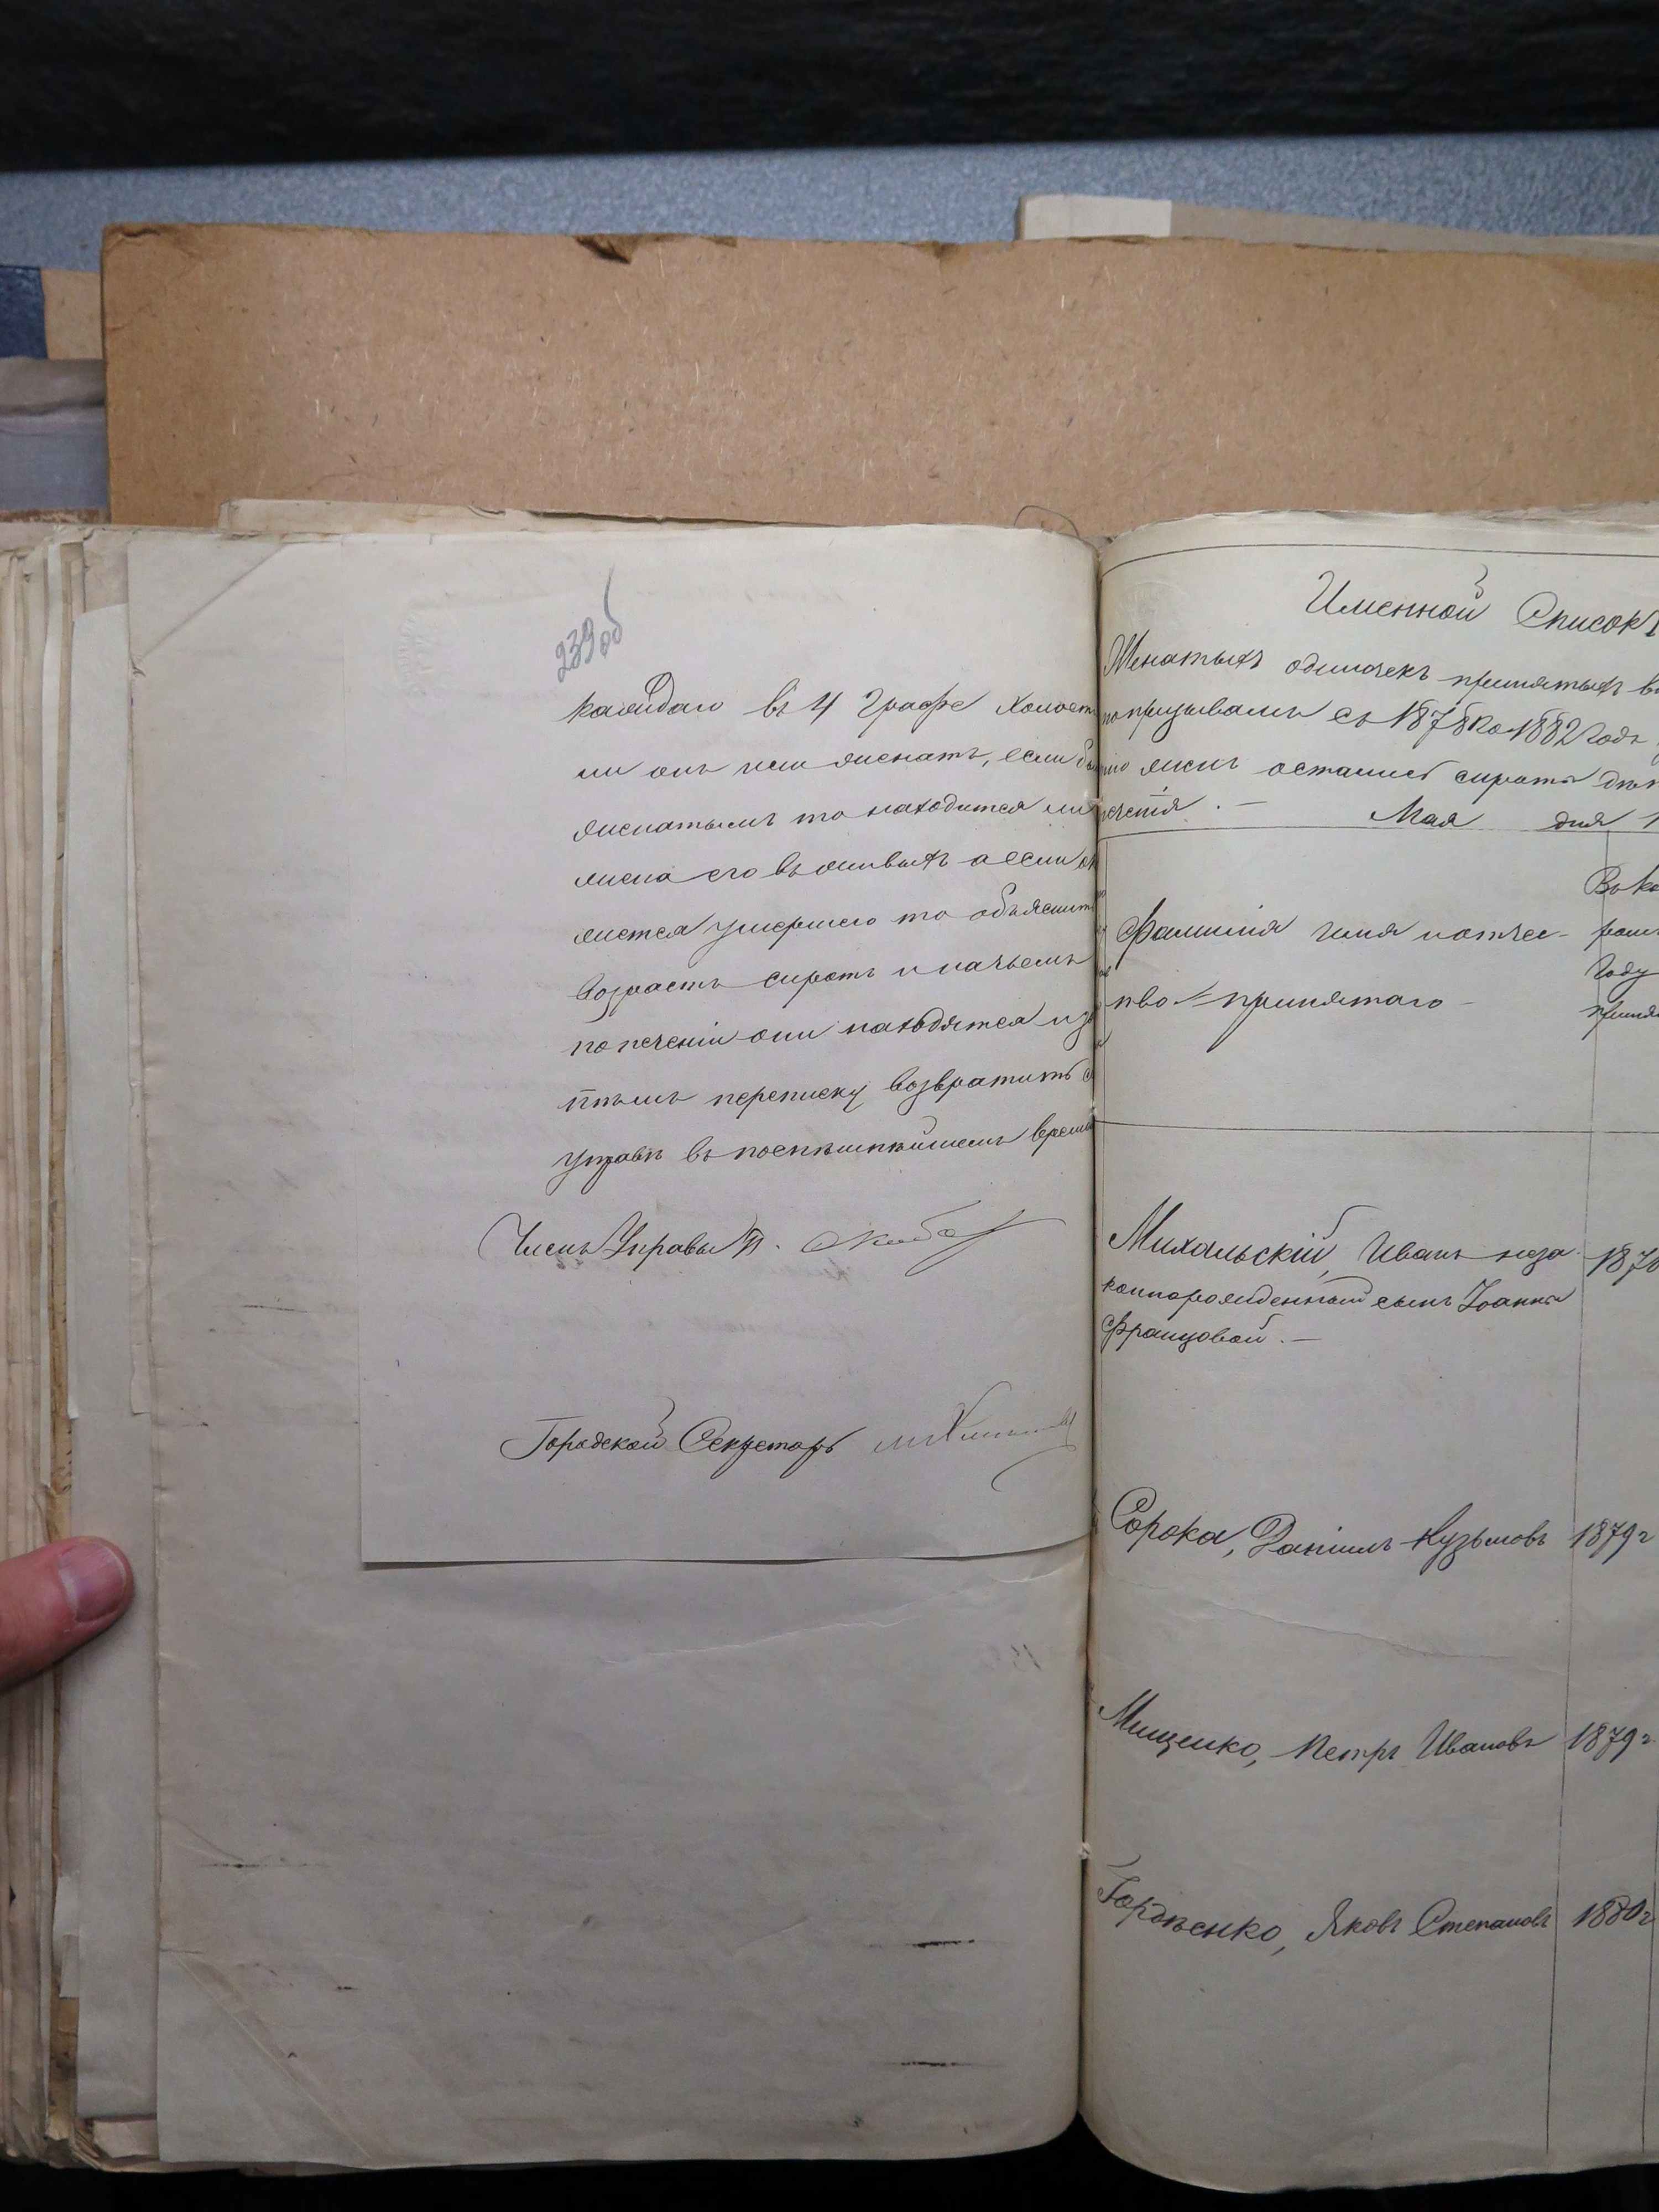 239 об
каждаго въ 4 графе холост
ли онъ или женатъ, если бы
женатымъ то находится ли
жена его въ живыхъ а если
жется умершею то объяснит
возрастъ сиротъ и начьемъ
попеченіи они находятся и за
птъмъ переписку возвратить
управѣ въ поспѣшнѣйшемъ време
Членъ Управы П. Скоба
Городской Секретарь
Именной Списокъ
Женатыхъ одиночекъ принятыхъ в
по призывамъ съ 1878 по 1882 годъ
женъ остались сироты
Мая дня 1
Фамилія имя и отчес-
тво принятаго
Въ ко
ромъ
году
приня
Михальскій, Иванъ неза- 187
коннорожденный сынъ Іоанны
Францовой. —
Сорока, Даніилъ Кузьмовъ 1879 г
Мищенко, Петръ Ивановъ 1879 г
Гордѣенко, Яковъ Степановъ 1880 г